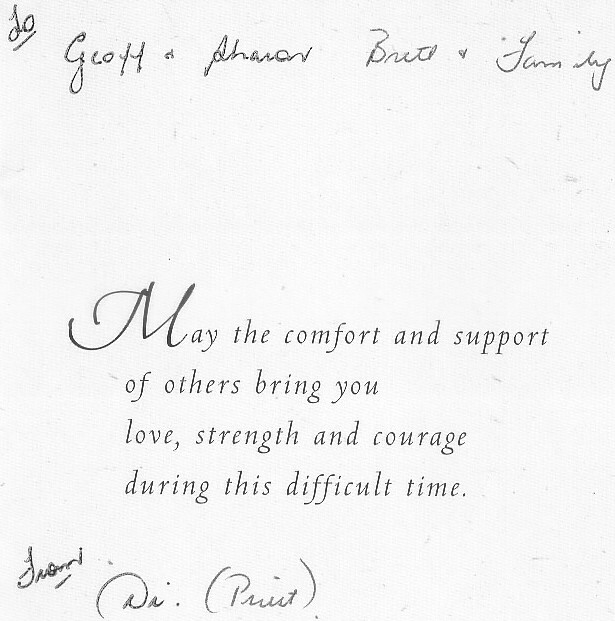 To
Geoff & Sharon Brett & Family
May the comfort and support
of others bring you
love, strength and courage
during this difficult time.
From
Di. (Priest)